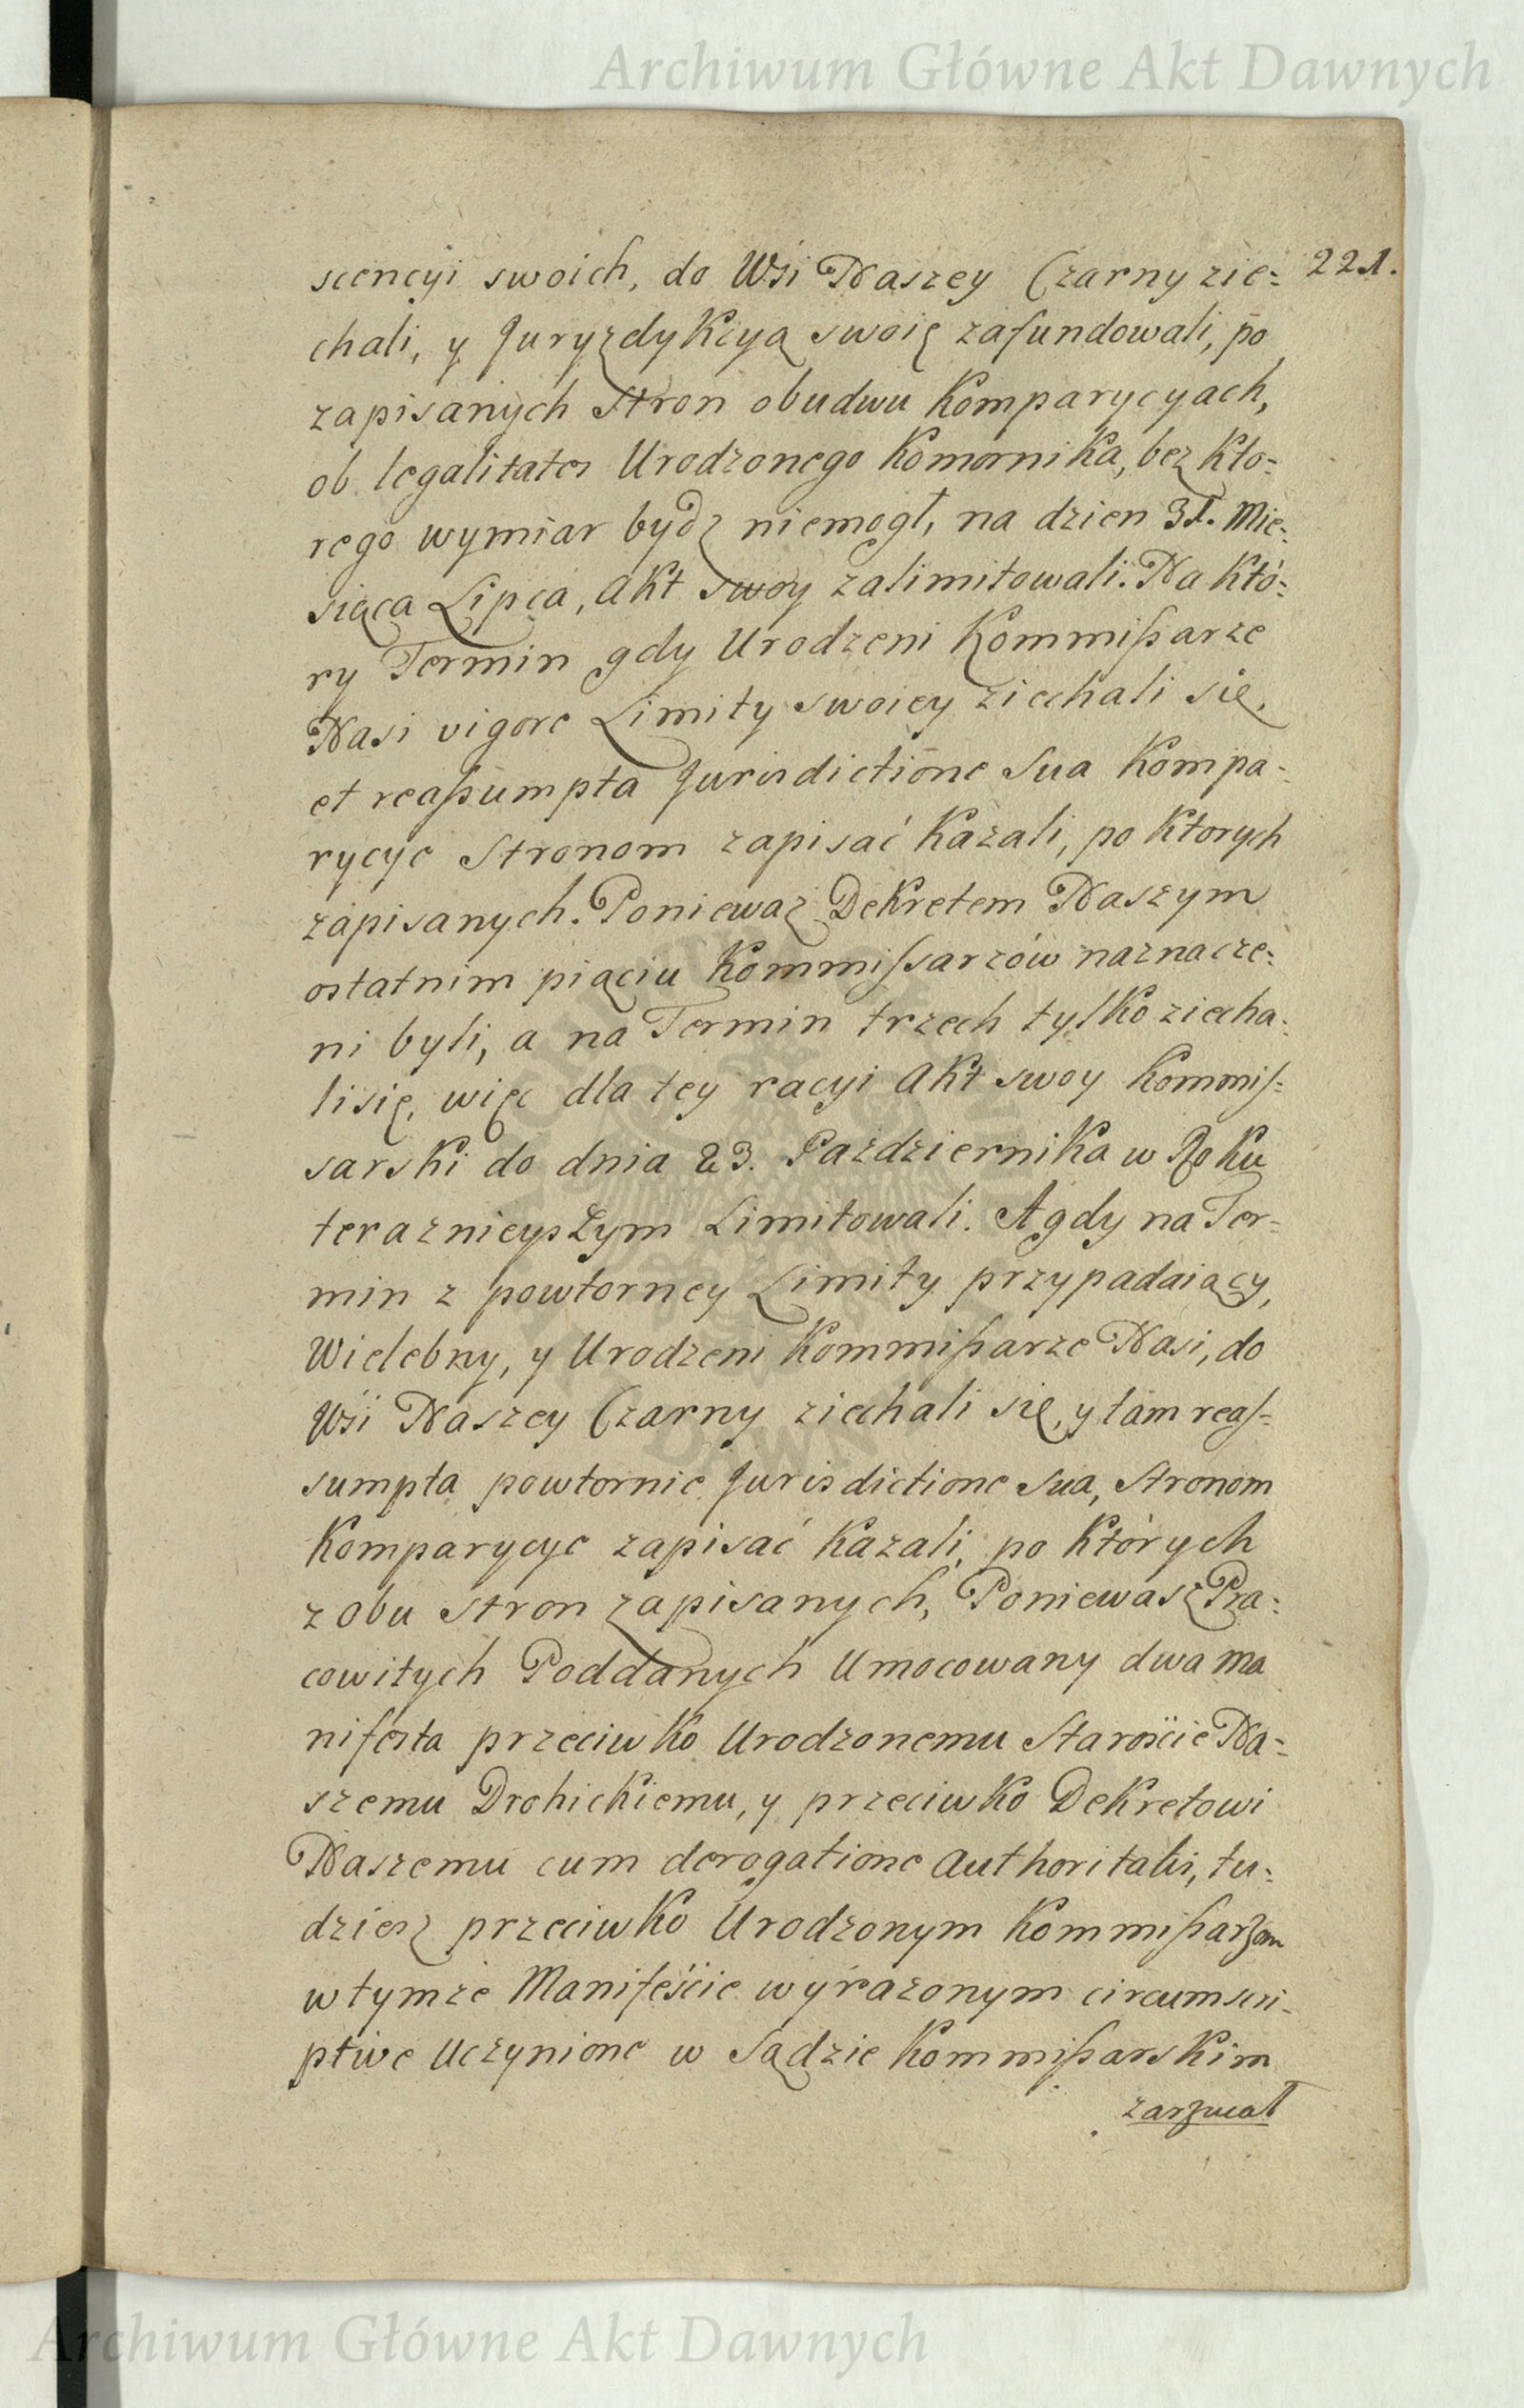 Archiwum Główne Akt Dawnych
221.
scencyi swoich, do Wsi Naszey Czarny zie-
chali, y Juryzdykcyą swoię zafundowali, po
zapisanych Stron obudwu Komparycyach,
ob legalitates Urodzonego Komornika, bez kto-
rego wymiar bydz niemogł, na dzien 31. Mie-
siąca Lipca, Akt swoy zalimitowali. Na któ-
ry Termin gdy Urodzeni Kommißarze
Nasi vigore Limity swoiey ziechali się,
et reaßumpta Jurisdictione Sua Kompa-
rycye Stronom zapisać kazali, po ktorych
zapisanych. Poniewaz Dekretem Naszym
ostatnim piąciu Kommissarzów naznacze-
ni byli, a na Termin trzech tylko ziecha-
lisię, więc dla tey racyi Akt swoy Kommis-
sarski do dnia 23. Pazdziernika w Roku
teraznieyszym Limitowali. A gdy na Ter-
min z powtorney Limity przypadaiący,
Wielebny, y Urodzeni Kommißarze Nasi, do
Wsi Naszey Czarny ziechali się, y tam reas-
sumpta powtornie Jurisdictione sua, Stronom
Komparycye zapisać kazali, po których
z obu stron zapisanych, Poniewasz Pra-
cowitych Poddanych Umocowany dwa ma
nifesta przeciwko Urodzonemu Staroście Na-
szemu Drohickiemu, y przeciwko Dekretowi
Naszemu cum derogatione Authoritatis, tu-
dziesz przeciwko Urodzonym Kommißarzom
w tymże Manifeście wyrazonym circumscri-
ptive Uczynione w Sądzie Kommißarskim
zarzucał
Archiwum Główne Akt Dawnych